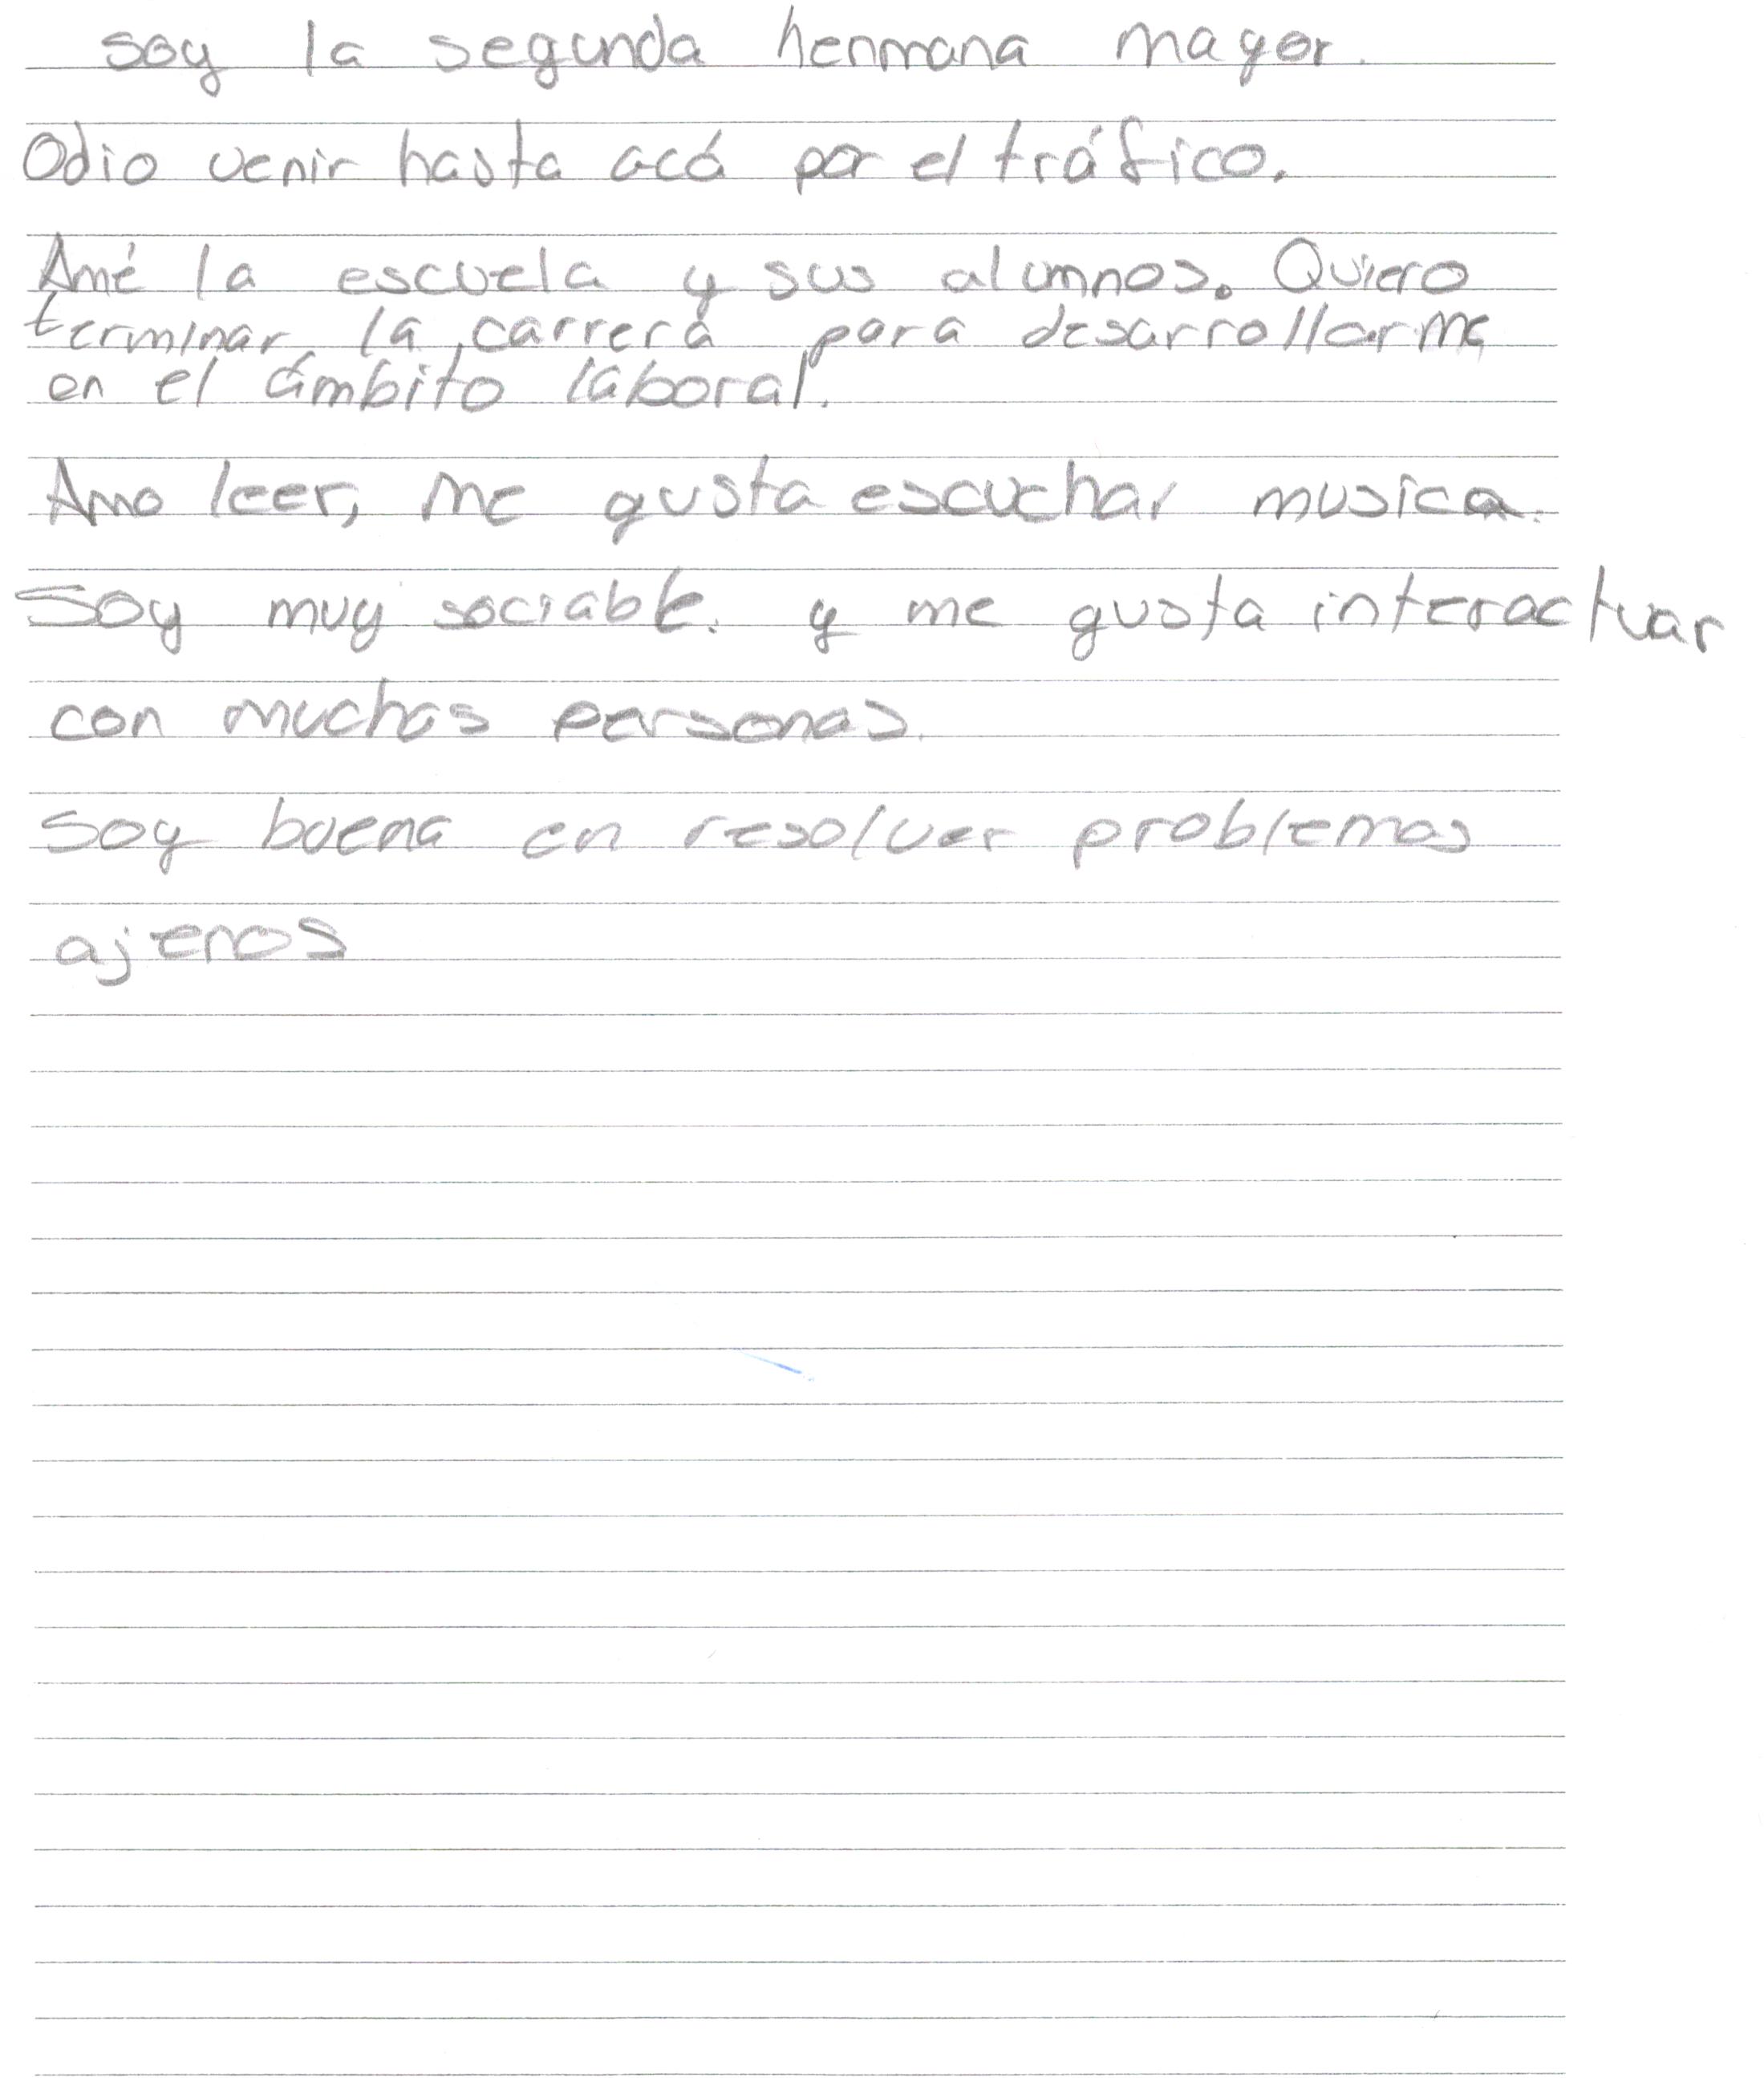 soy la segunda hermana mayor.
Odio venir hasta acá por el tráfico.
Amé la escuela y sus alumnos. Quiero
terminar la carrera para desarrollarme
en el ámbito laboral.
Amo leer, me gusta escuchar musica.
Soy muy sociable. y me gusta interactuar
con muchas personas.
Soy buena en resolver problemas
ajenos